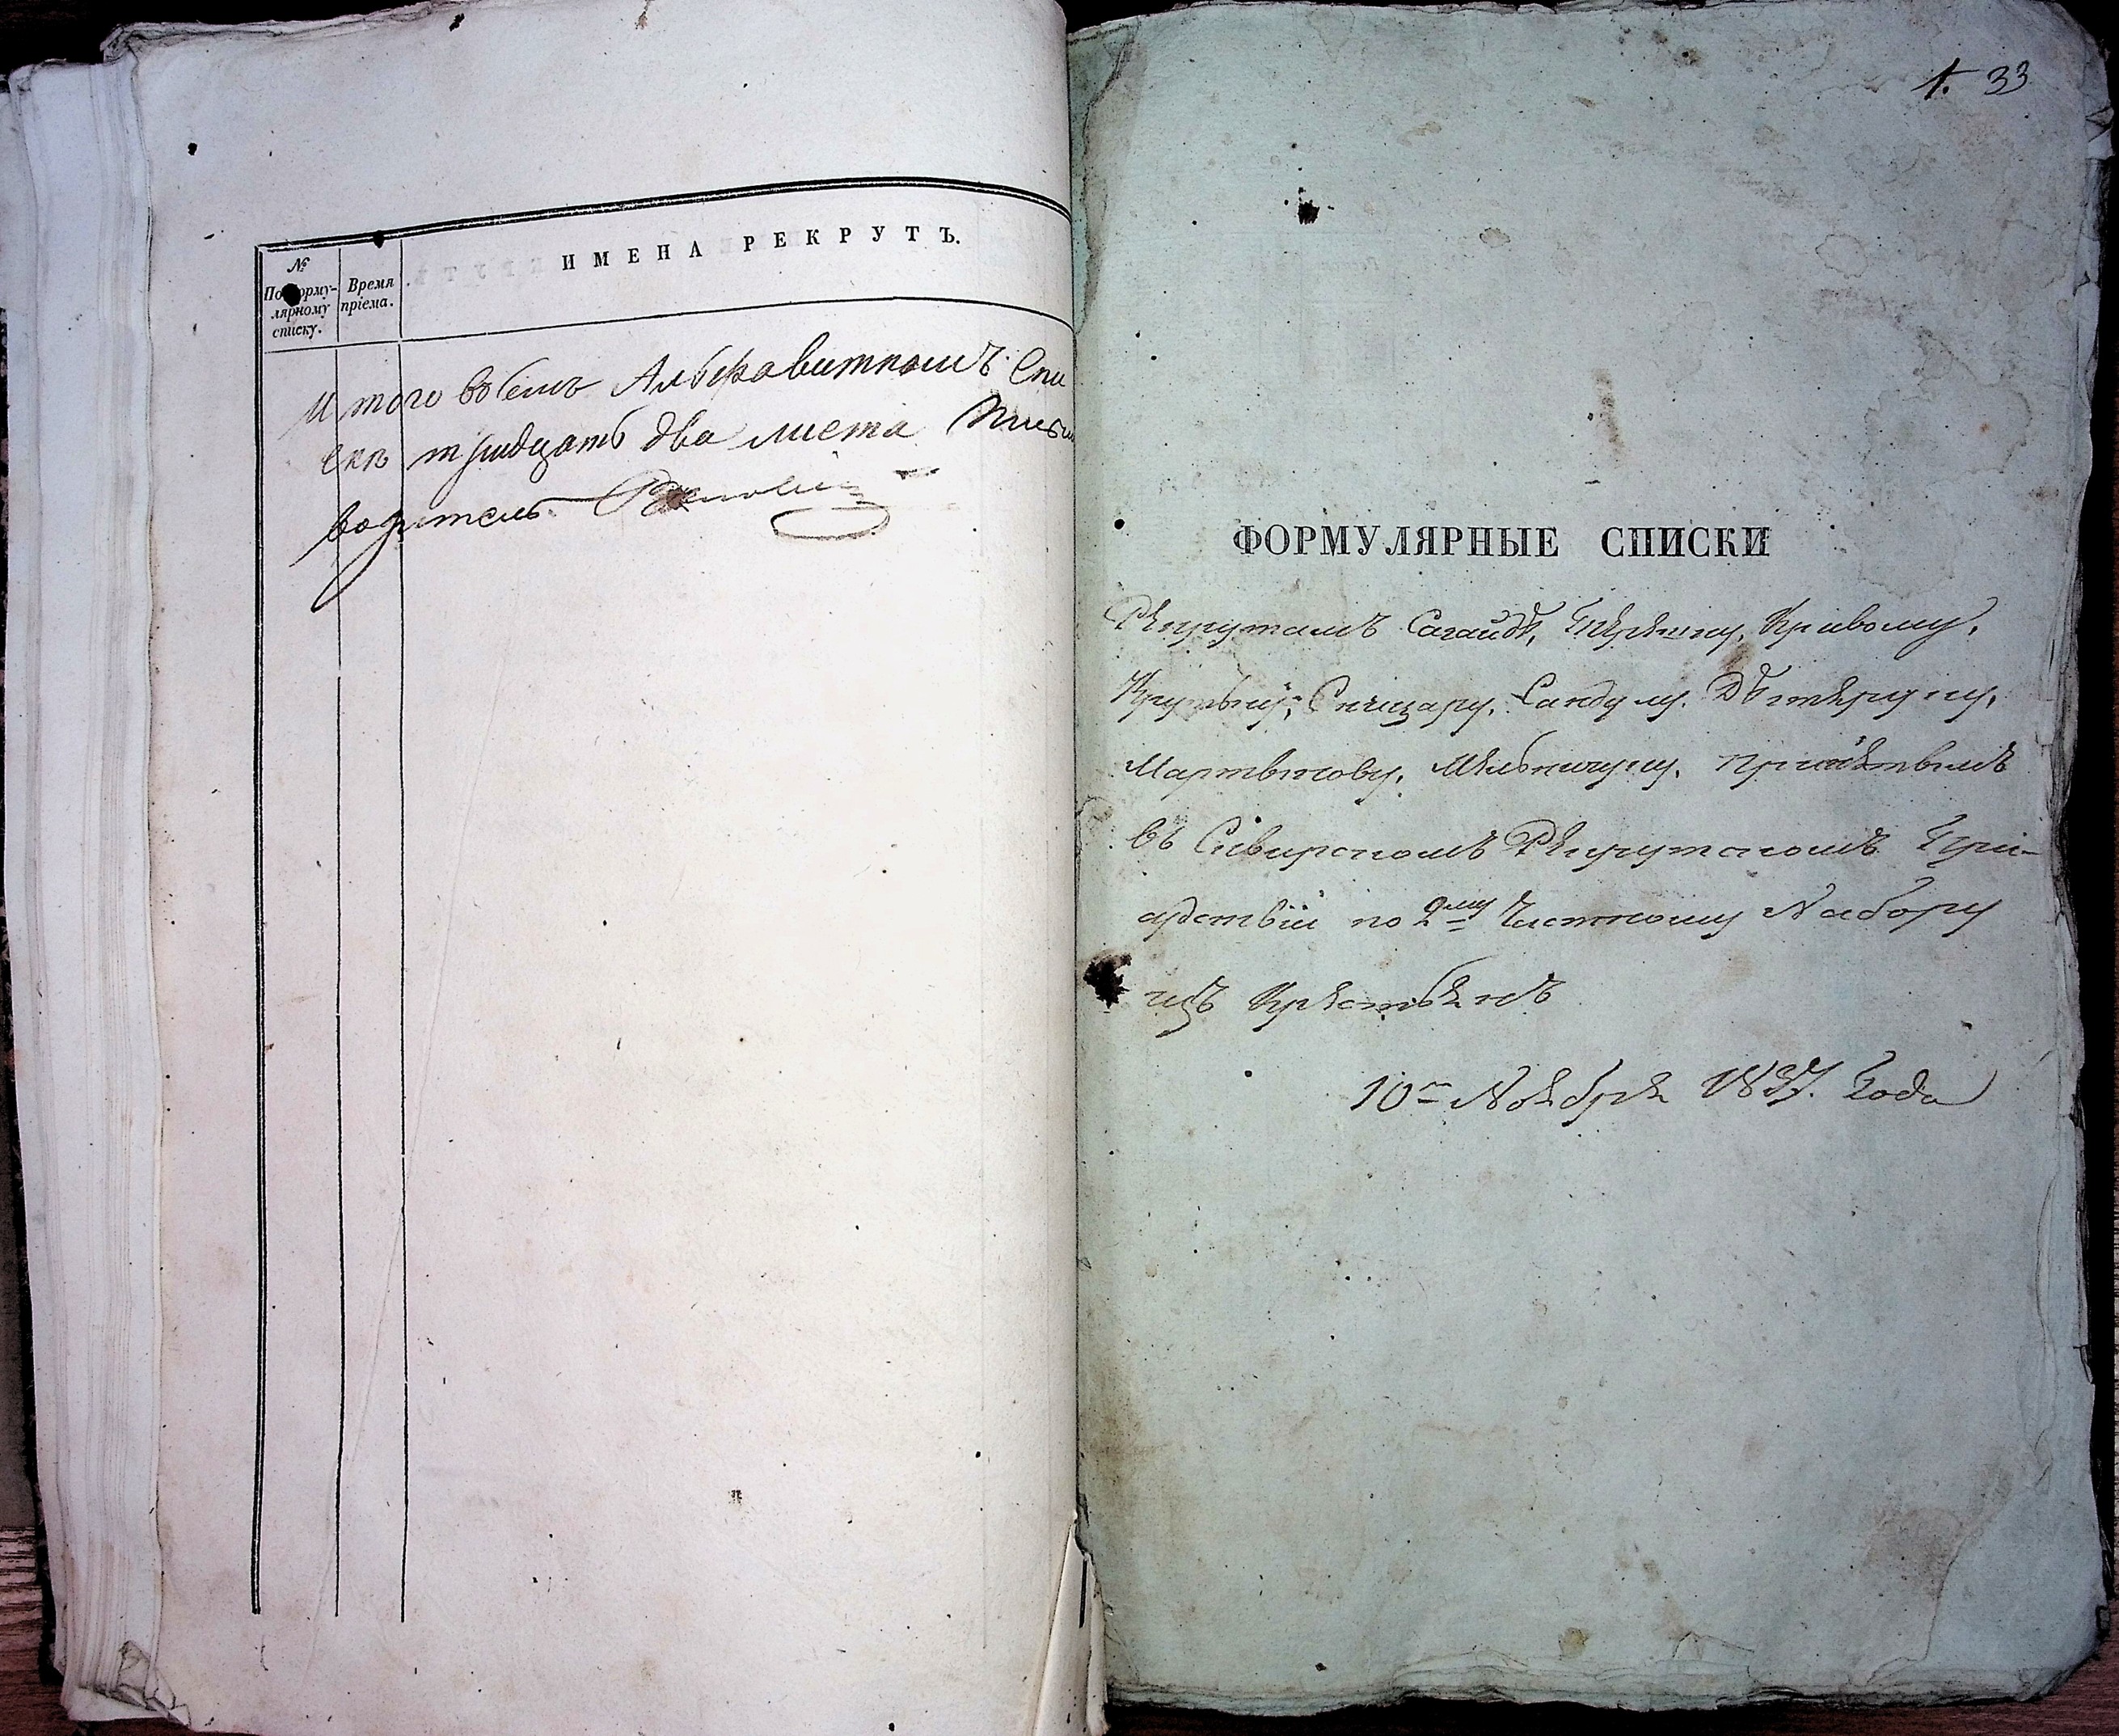 №
По форму-
лярному
списку.
Время
пріема.
ИМЕНА РЕКРУТЪ.
Итого въ семъ Алфавитномъ Спи
скѣ тридцать два листа Письмо
водитель
1. 33
ФОРМУЛЯРНЫЕ СПИСКИ
Рекрутамъ Сагайдѣ, Кривому,
Сницару, Сандулу,
Мартынову, Мельничуку, принятымъ
въ Рекрутскомъ При-
сутствіи по 2му Частному Набору
изъ Крестьянъ
10го Ноября 1837. Года